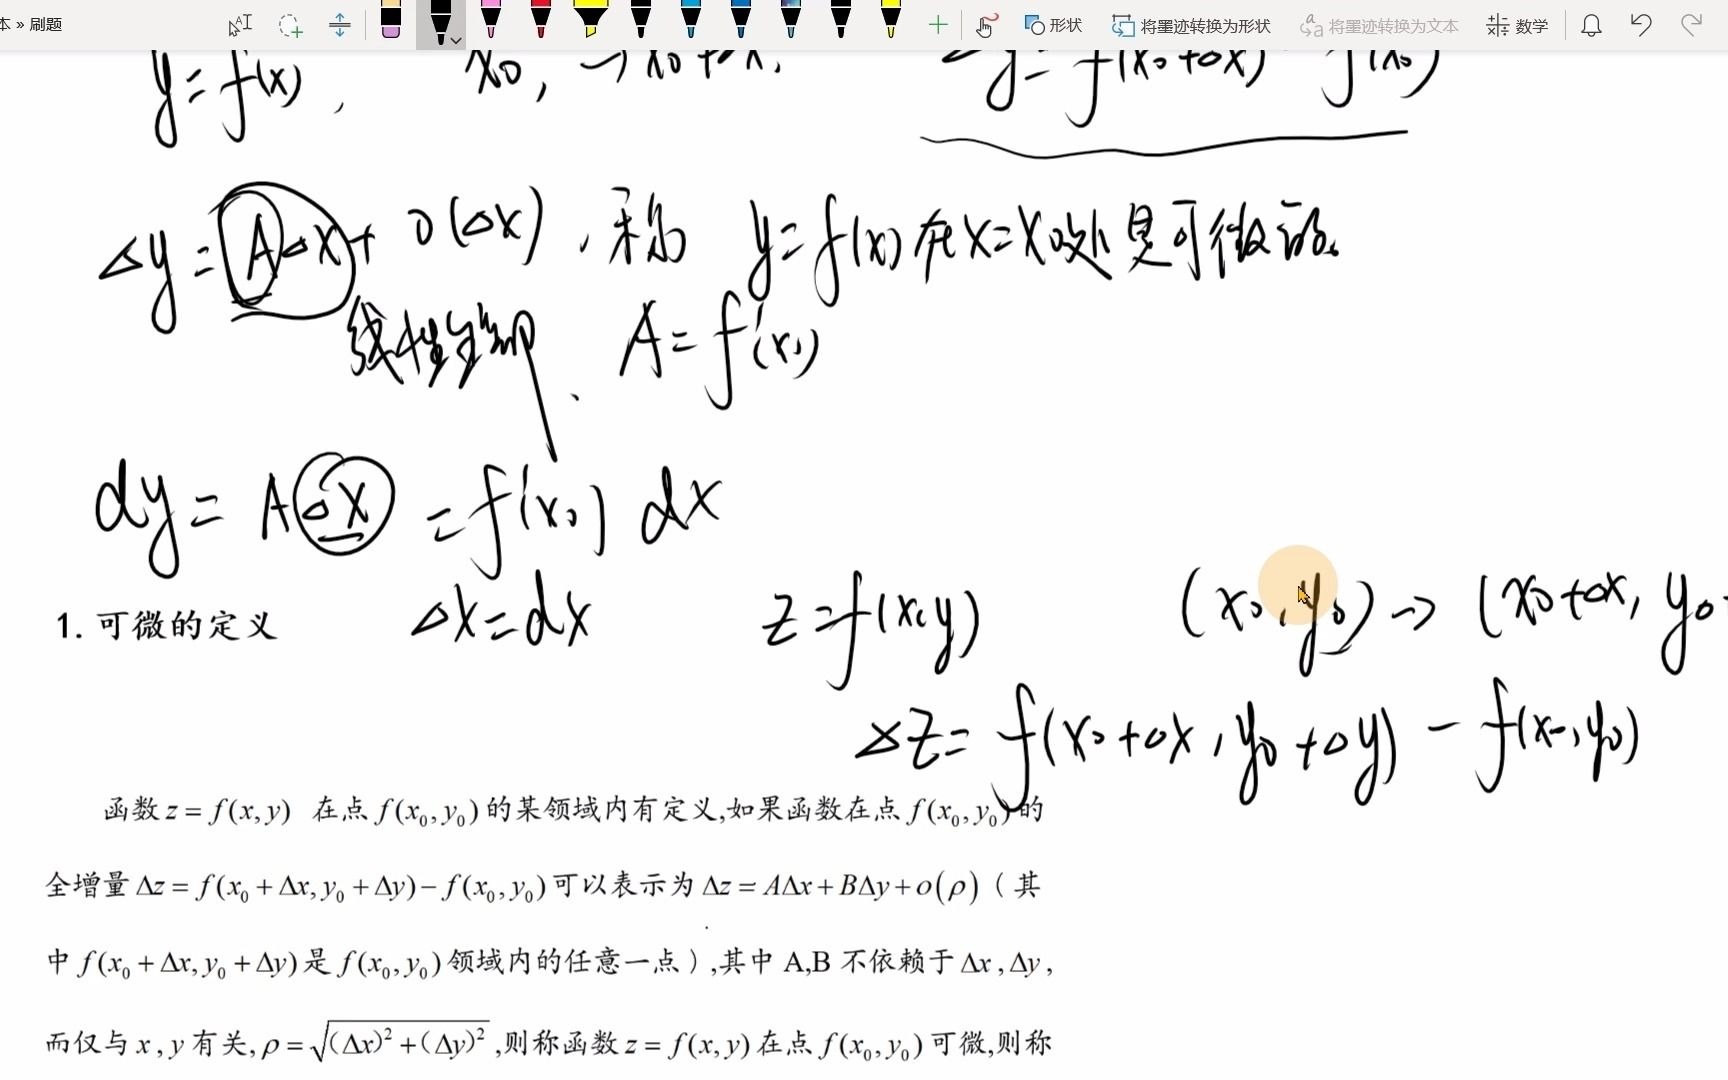 本 » 刷题
形状 将墨迹转换为形状 将墨迹转换为文本 数学
y=f(x), x0, →x0+Δx. Δy=f(x0+Δx)-f(x0)
Δy=AΔx+o(Δx),称 y=f(x)在x=x0处是可微的.
线性主部、A=f'(x0)
dy=AΔx=f'(x0)dx
Δx=dx z=f(x,y) (x0,y0)→(x0+Δx,y0
1. 可微的定义
Δz=f(x0+Δx,y0+Δy)-f(x0,y0)
函数 z = f(x,y) 在点 f(x₀,y₀) 的某领域内有定义,如果函数在点 f(x₀,y₀) 的
全增量 Δz = f(x₀ + Δx, y₀ + Δy) − f(x₀,y₀) 可以表示为 Δz = AΔx + BΔy + o(ρ)(其
中 f(x₀ + Δx, y₀ + Δy) 是 f(x₀,y₀) 领域内的任意一点),其中 A,B 不依赖于 Δx,Δy,
而仅与 x,y 有关,ρ = √(Δx)² +(Δy)² ,则称函数 z = f(x,y) 在点 f(x₀,y₀) 可微,则称